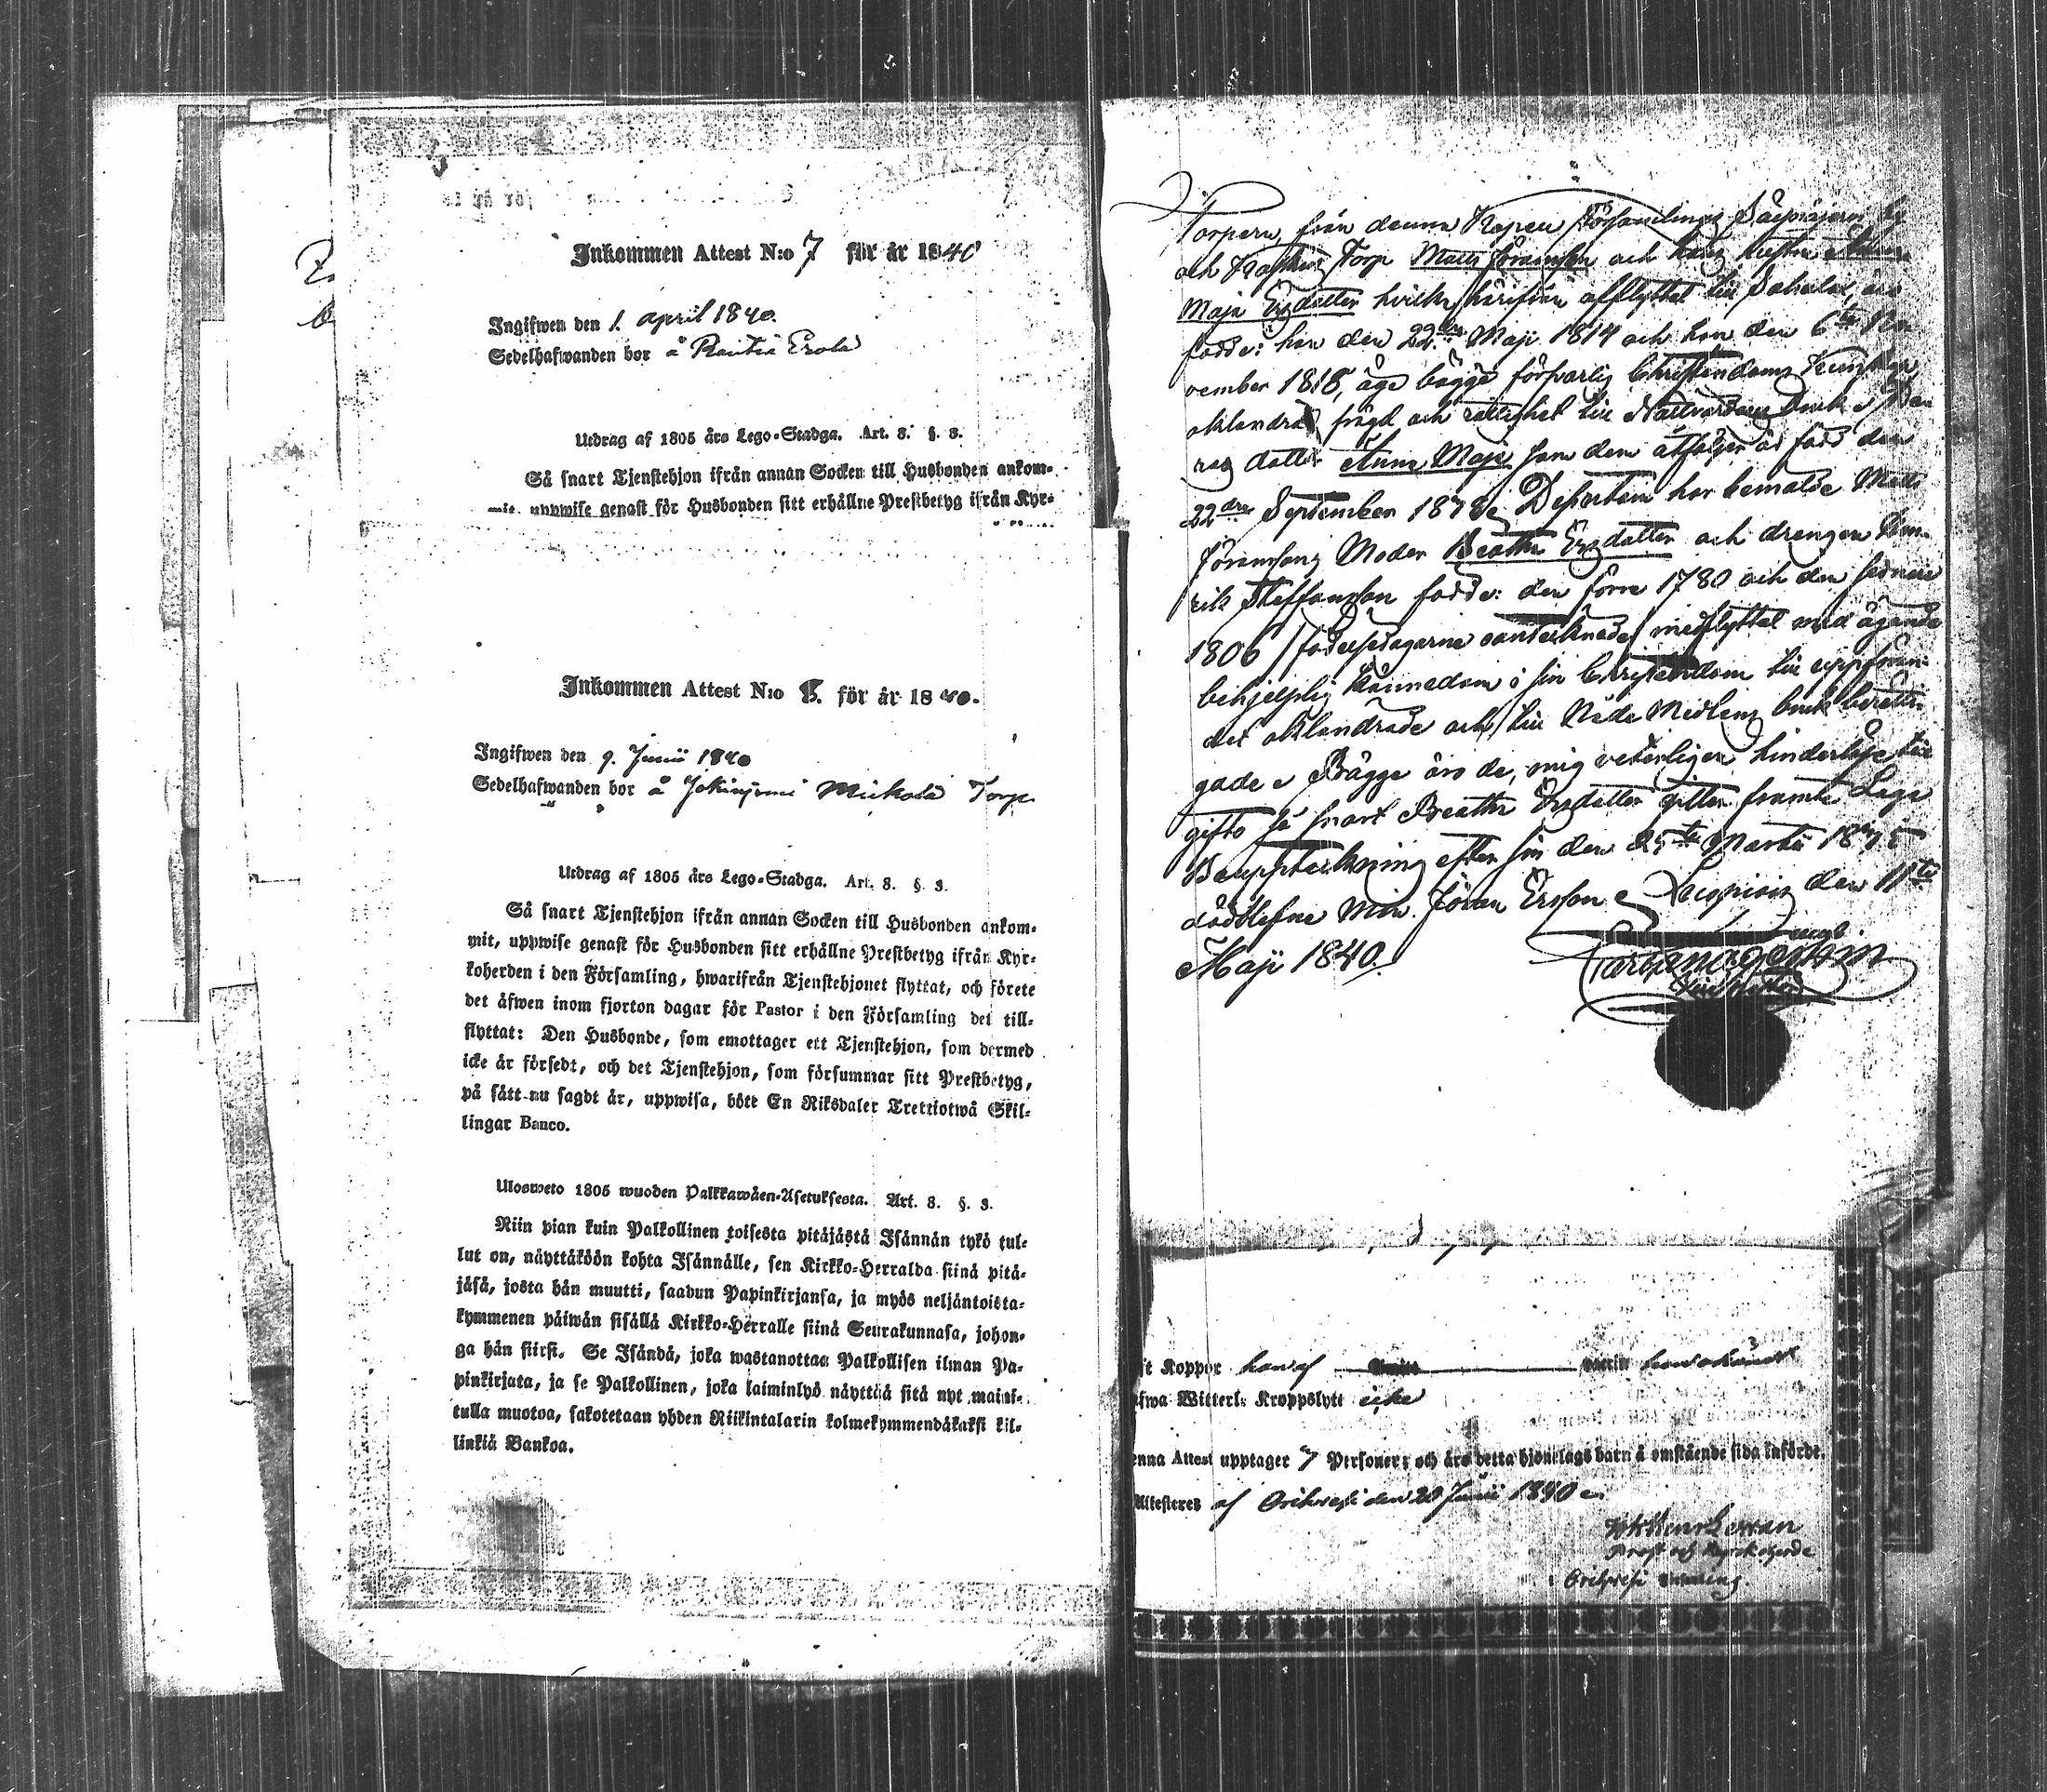 Inkommen Attest N:o 7 för år 1840
Ingifwen den 1. april 1840.
Sedelhafwanden bor å Rautia Erola
Utdrag af 1805 års Lego-Stadga. Art. 8. §. 3.
Så snart Tjenstehjon ifrån annan Socken till Husbonden ankom-
mit, uppwise genast för Husbonden sitt erhållne Prestbetyg ifrån Kyr-
Inkommen Attest N:o 8. för år 1840.
Ingifwen den 9. Junii 1840
Sedelhafwanden bor å Jokinjemi Mickola Torp
Utdrag af 1805 års Lego-Stadga. Art. 8. §. 3.
Så snart Tjenstehjon ifrån annan Socken till Husbonden ankom-
mit, uppwise genast för Husbonden sitt erhållne Prestbetyg ifrån Kyr-
koherden i den Församling, hwarifrån Tjenstehjonet flyttat, och förete
det äfwen inom fjorton dagar för Pastor i den Församling det till-
flyttat: Den Husbonde, som emottager ett Tjenstehjon, som dermed
icke är försedt, och det Tjenstehjon, som försummar sitt Prestbetyg,
på sätt nu sagdt är, uppwisa, bött En Riksdaler Trettiotwå Skil-
lingar Banco.
Ulosweto 1805 wuoden Palkkawäen-Asetuksesta. Art. 8. §. 3.
Niin pian kuin Palkollinen toisesta pitäjästä Isännän tykö tul-
lut on, näyttäköön kohta Isännälle, sen Kirkko-Herralda siinä pitä-
jäsä, josta hän muutti, saadun Papinkirjansa, ja myös neljäntoista-
kymmenen päiwän sisällä Kirkko-Herralle siinä Seurakunnasa, johon-
ga hän siirsi. Se Isändä, joka wastanottaa Palkollisen ilman Pa-
pinkirjata, ja se Palkollinen, joka laiminlyö näyttää sitä nyt maini-
tulla muotoa, sakotetaan yhden Riikintalarin kolmekymmendäkaksi kil-
linkiä Bankoa.
Torparn från denna Kapell Församlings
och Torp Matts Göransson och hans hustru Anna
Maja Ersdotter hvilka härifrån afflyttat till Sahalax, äro
födde: han den 22dra Maji 1814 och hon den 6te No-
vember 1818, äga bägge försvarlig Christendoms Kunskap,
oklandrad frägd och rättighet till Nattvardens bruk. De-
ras dotter Anna Maja som dem åtföljer är född den
22dra September 1838. Dessutom har bemälde Matts
Göranssons Moder Beatha Ersdotter och drengen Hen-
rik Steffansson födde: den förre 1780 och den sednare
1806 /födelsedagarne oanteknade/ medflyttat med ägande
behjelplig kännedom i sin Christendom till uppföran-
det oklandrade och till Nåde Medlens bruk beretti-
gade. Bägge äro de, mig veterligen hinderlöse till
gifto så snart Beatha Ersdotter gitter framte Laga
Bouppteckning efter sin den 25te Martii
dödblefne Man Göran Ersson. den 11te
Maji 1840.
ft Koppor haft
äfwa Witterl. Kroppslytt icke
enna Attest upptager 7 Personer; och äro detta hjonelags barn å omstående sida införde.
Attesteres af Orihvesi den 20 Junii 1840
Prost och Kyrkoherde